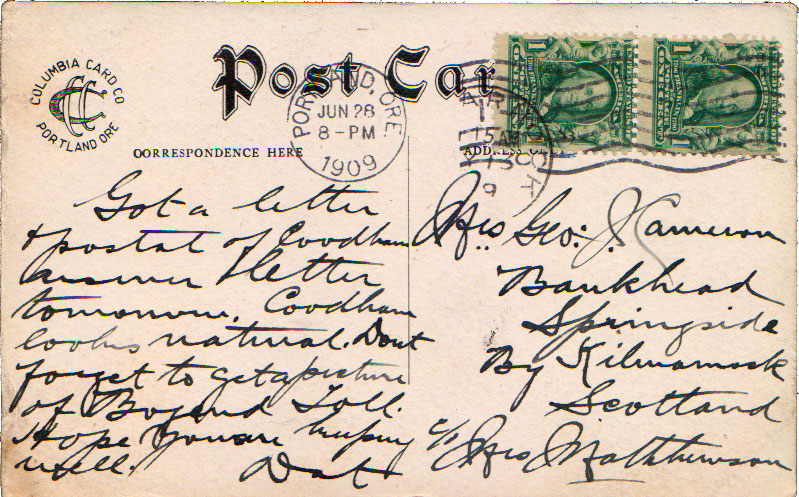 COLUMBIA CARD CO
PORTLAND ORE
Post Car
PORTLAND, ORE
JUN 28
8-PM
1909
CORRESPONDENCE HERE
ADDRESS
1
1
Got a letter
& postal of Coodham
answer letter
tomorrow. Coodham
looks natural. Dont
forget to get a picture
of Bogend Toll.
Hope you are keeping
well. Dat
Mrs Geo: J. Cameron
Bankhead
Springside
By Kilmarnock
Scotland
c/o Mrs Matthewson